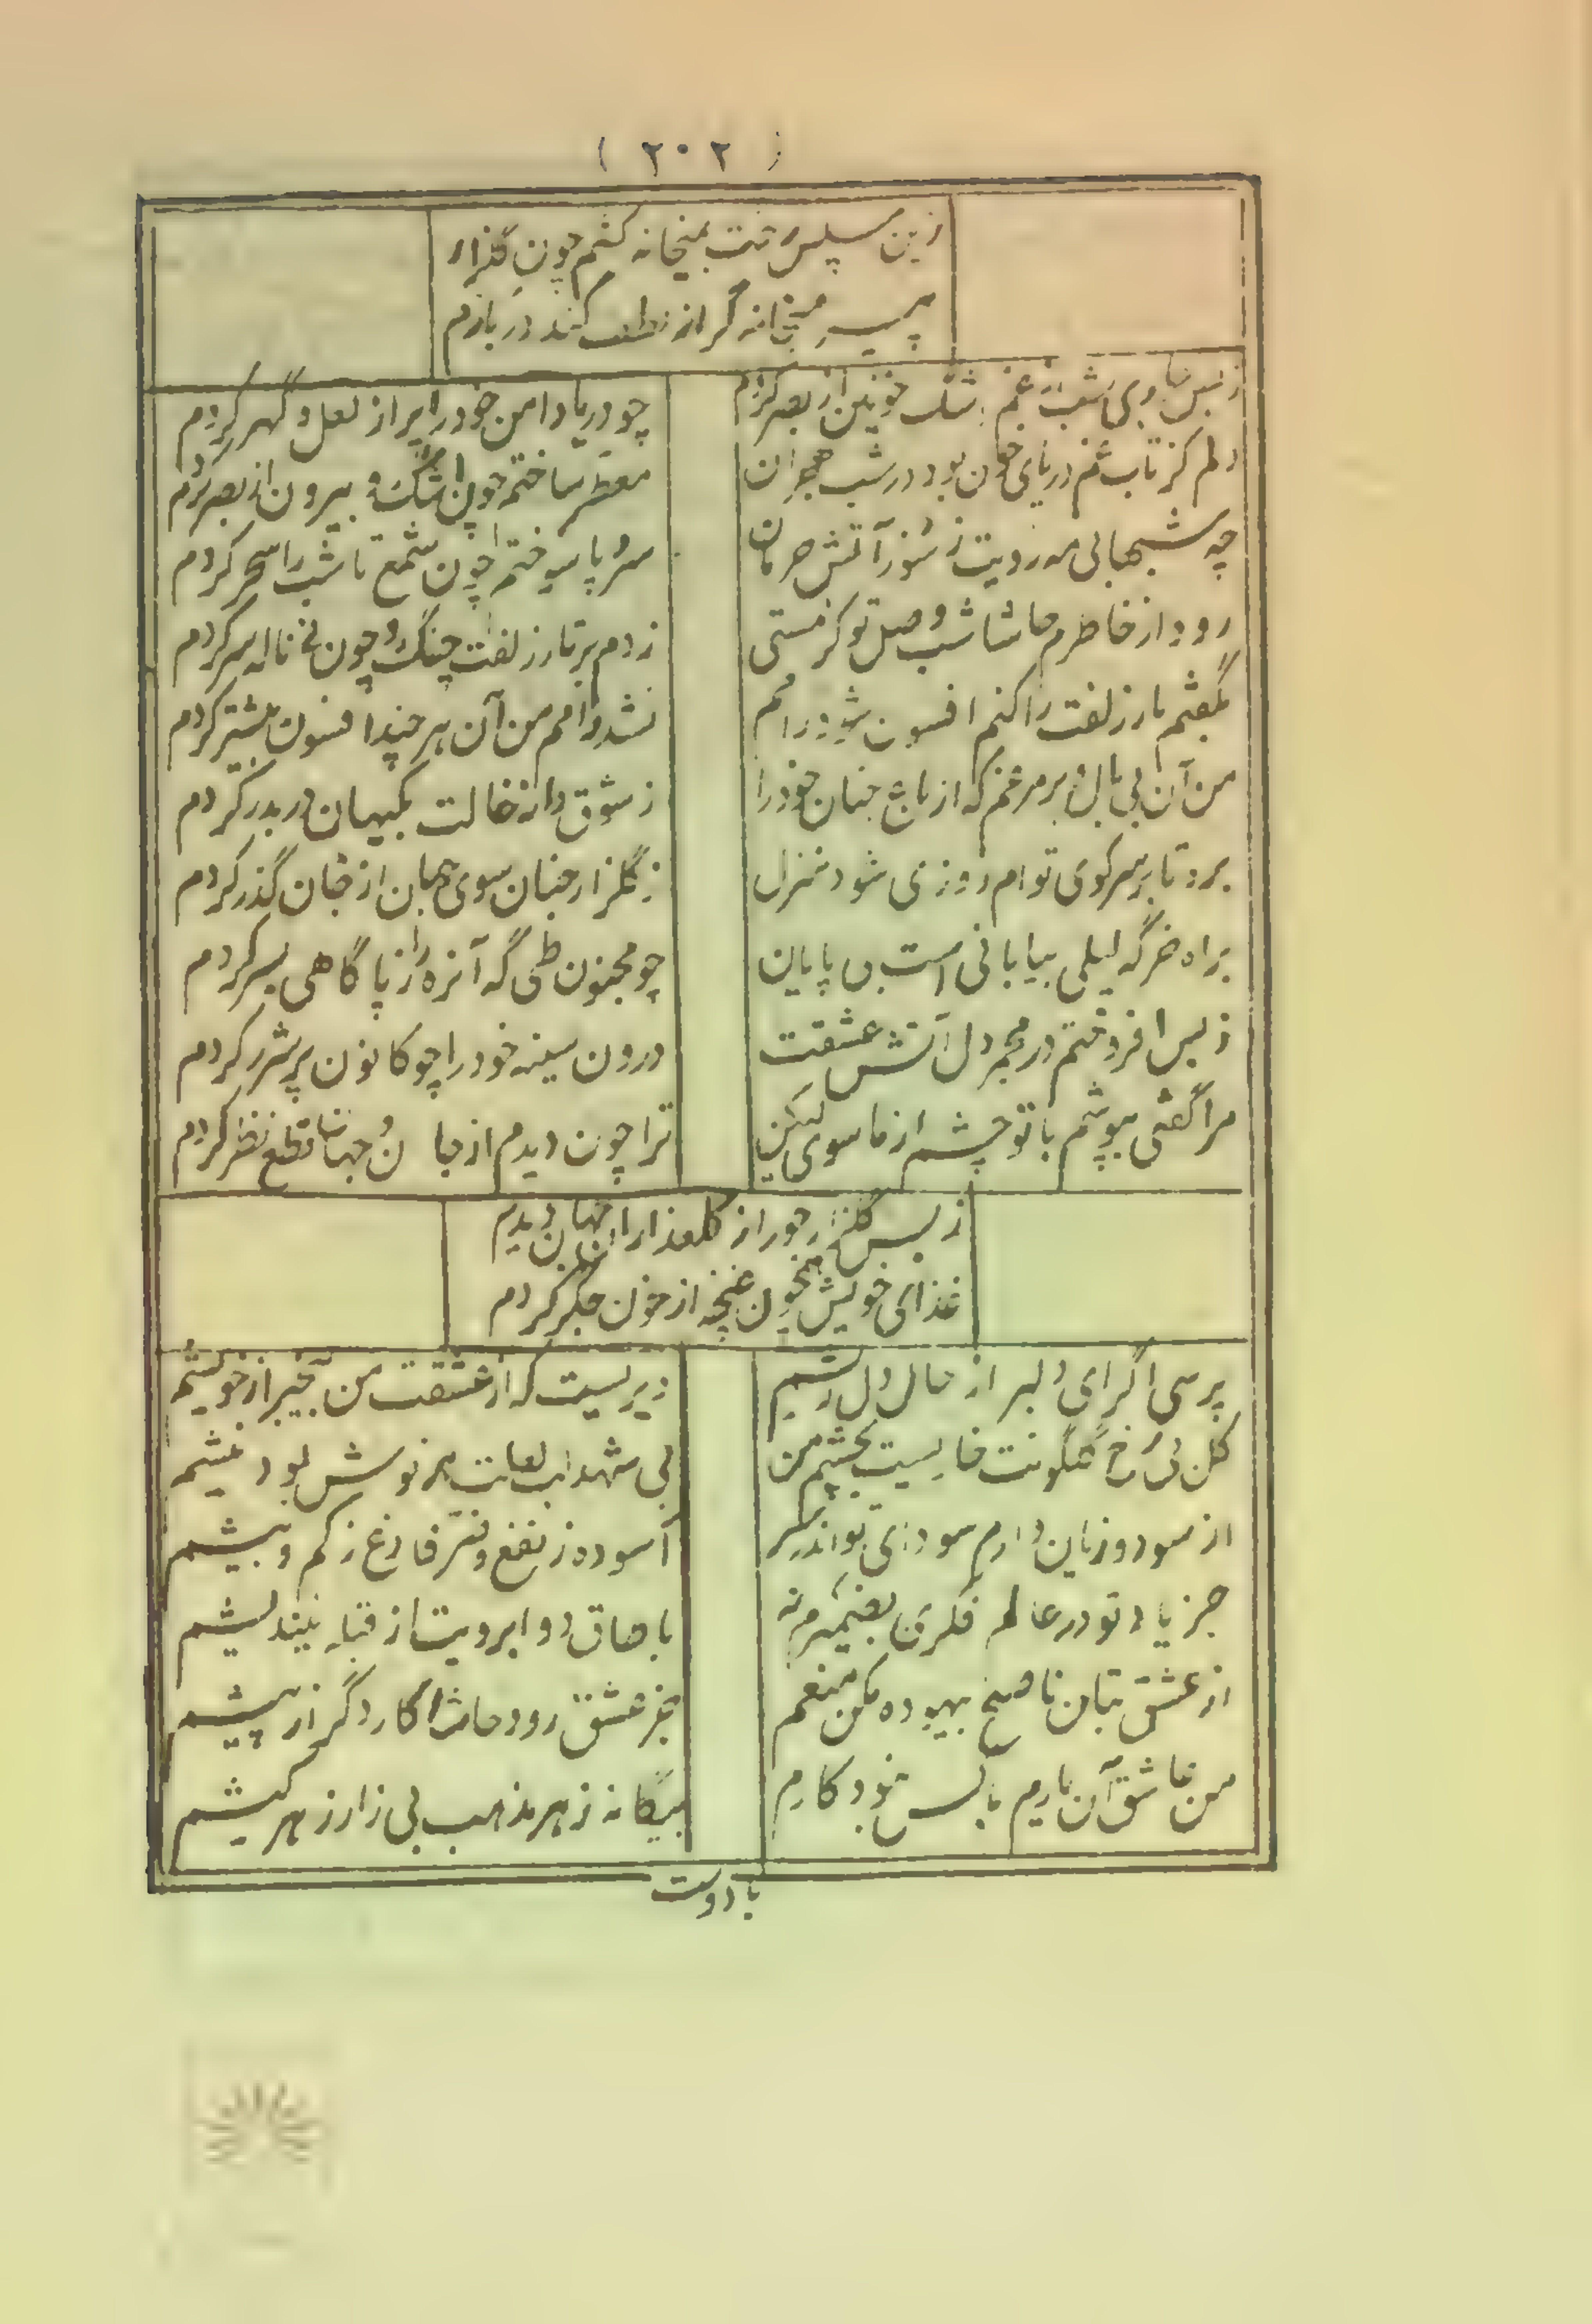 ( ۲۰۲ )
زین سپس رخت بمیخانه کشم چون گذرار
پیر میخانه گر از لطف کند در بازم
ز بس بی شب از غم اشک خونین از بصر کردم
چو دریا دامن خود را پر از لعل و گهر کردم
دلم کز تاب غم دریای خون بود در شب هجران
مقطر ساختم چون اشک و بیرون از بصر کردم
چه شبهای مه رویت ز سوز آتش حرمان
سراپا سوختم چون شمع تا شب را سحر کردم
رود از خاطرم حاشا شب وصل تو کز مستی
زدم بر تار زلفت چنگ و چون نی ناله سر کردم
بگفتم مار زلفت را کنم افسون شود رامم
نشد رامم من آن هر چند افسون بیشتر کردم
من آن بی بال و پر مرغم که از باغ جنان خود را
ز شوق دانهٔ خالت بکیهان در بدر کردم
برد تا بر سر کوی توام روزی شود منزل
ز گلزار جنان سوی جهان از جان گذر کردم
براه خرگه لیلی بیابانی است بی پایان
چو مجنون طی گه آنره را ز پا گاهی بسر کردم
ز بس افروختم در مجمر دل آتش عشقت
درون سینه خود را چو کانون پر شرر کردم
مرا گفتی بپوشم با تو چشم از ماسوی لیکن
ترا چون دیدم از جان و جهان قطع نظر کردم
ز بس جور از گلعذاران جهان دیدم
غذای خویش همچون غنچه از خون جگر کردم
پرسی اگر ای دلبر از حال دل ریشم
دیریست که از عشقت من بیخبر از خویشم
گل بی رخ گلگونت خاریست بچشم من
بی شهد لب لعلت هر نوش بود نیشم
از سود و زیان دارم سودای تو اندر سر
آسوده ز نفع و ضر فارغ ز کم و بیشم
جز یاد تو در عالم فکری بضمیرم نه
با طاق دو ابرویت از قبله نیندیشم
از عشق بتان ناصح بیهوده مکن منعم
جز عشق رود حاشا کار دگر از پیشم
من عاشق آن یارم با کس نبود کارم
بیگانه ز هر مذهب بی زار ز هر کیشم
با دوست